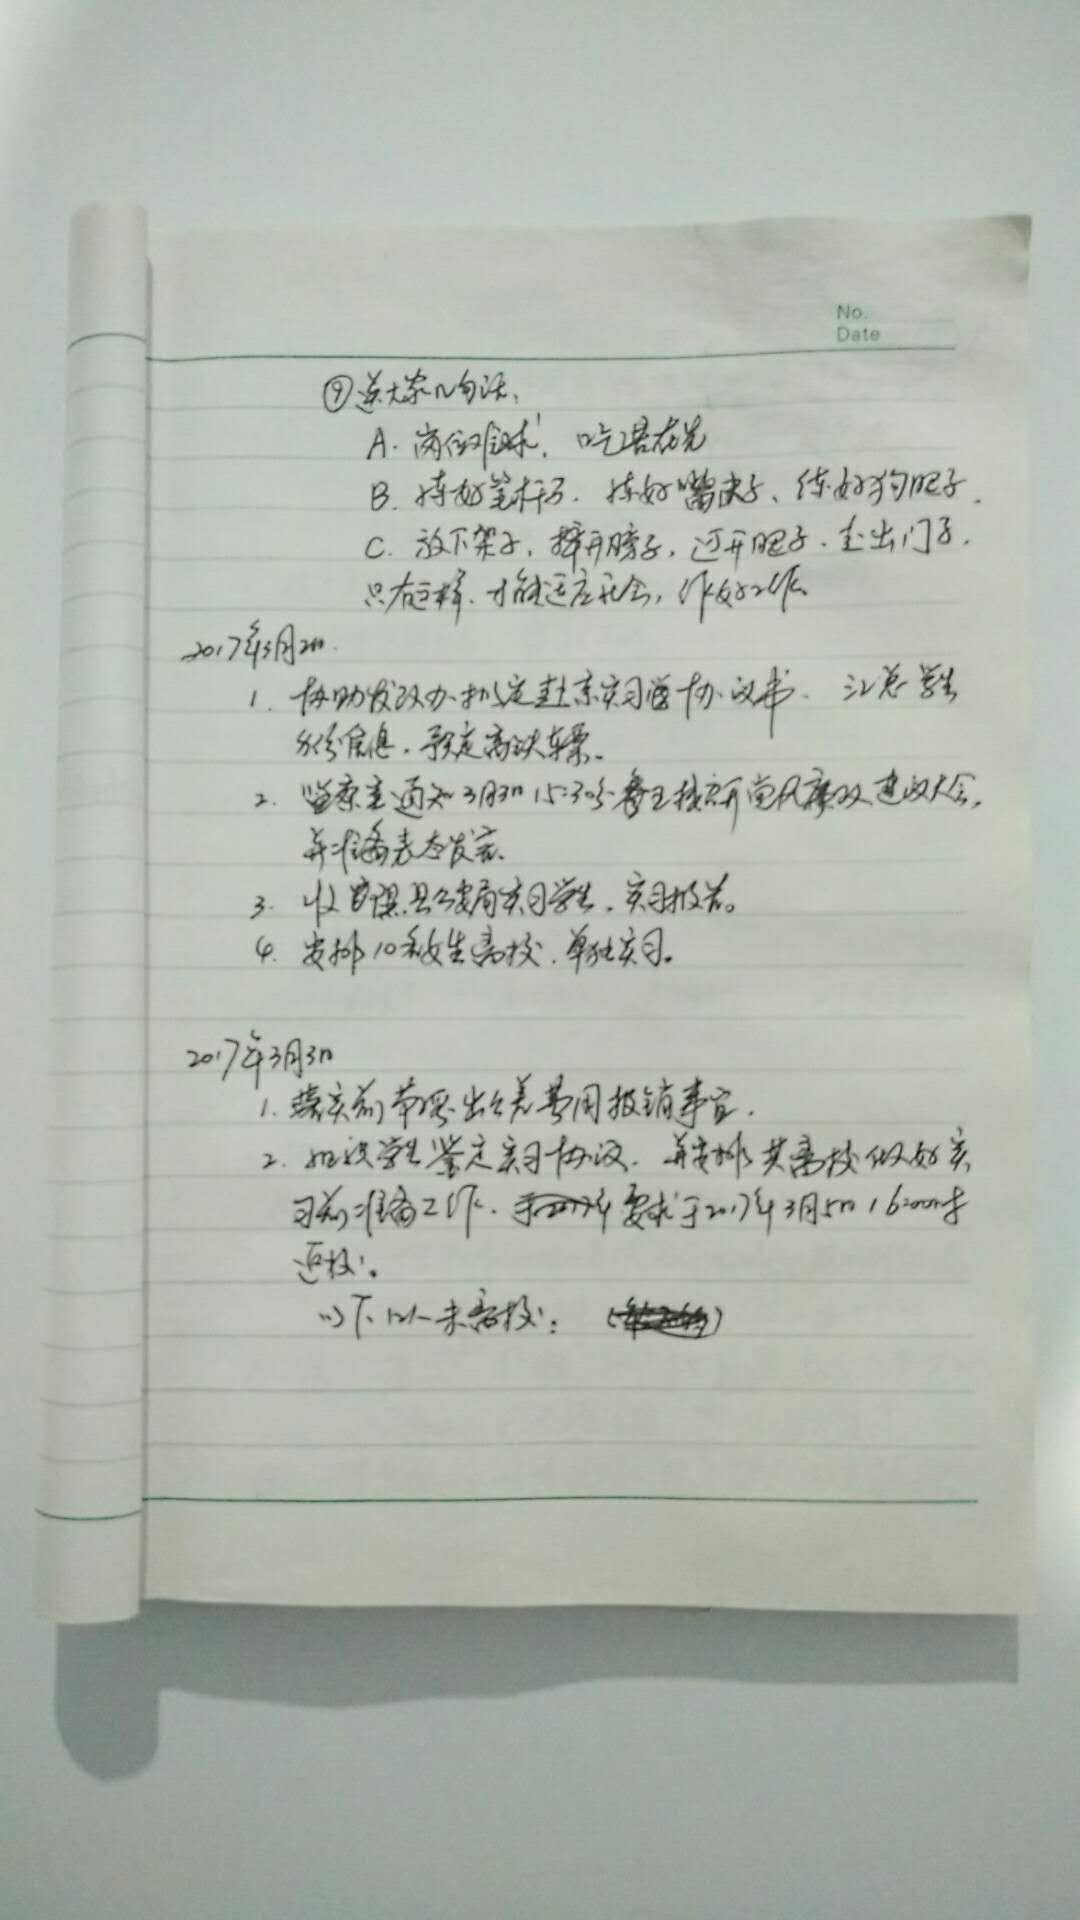 No.
Date
⑨送大家几句话:
A. 岗位难求, 吃苦在先
B. 练好笔杆子. 练好嘴皮子、练好狗胆子.
C. 放下架子, 撑开膀子, 迈开腿子. 走出门子.
只有这样. 才能适应社会, 做好工作.
2017年3月2日.
1. 协助发改办拟定赴京实习学生协议书. 汇总学生
身份信息. 预定高铁车票.
2. 监察室通知3月3日15:30分 召开党风廉政建设大会,
并准备表态发言.
3. 收 县公安局实习学生. 实习报告。
4. 安排10名女生离校. 单独实习。
2017年3月3日
1. 落实前 出公差费用报销事宜.
2. 组织学生鉴定实习协议. 并安排其离校做好实
习前准备工作. 要求于2017年3月5日16:00时
返校。
以下 未离校: